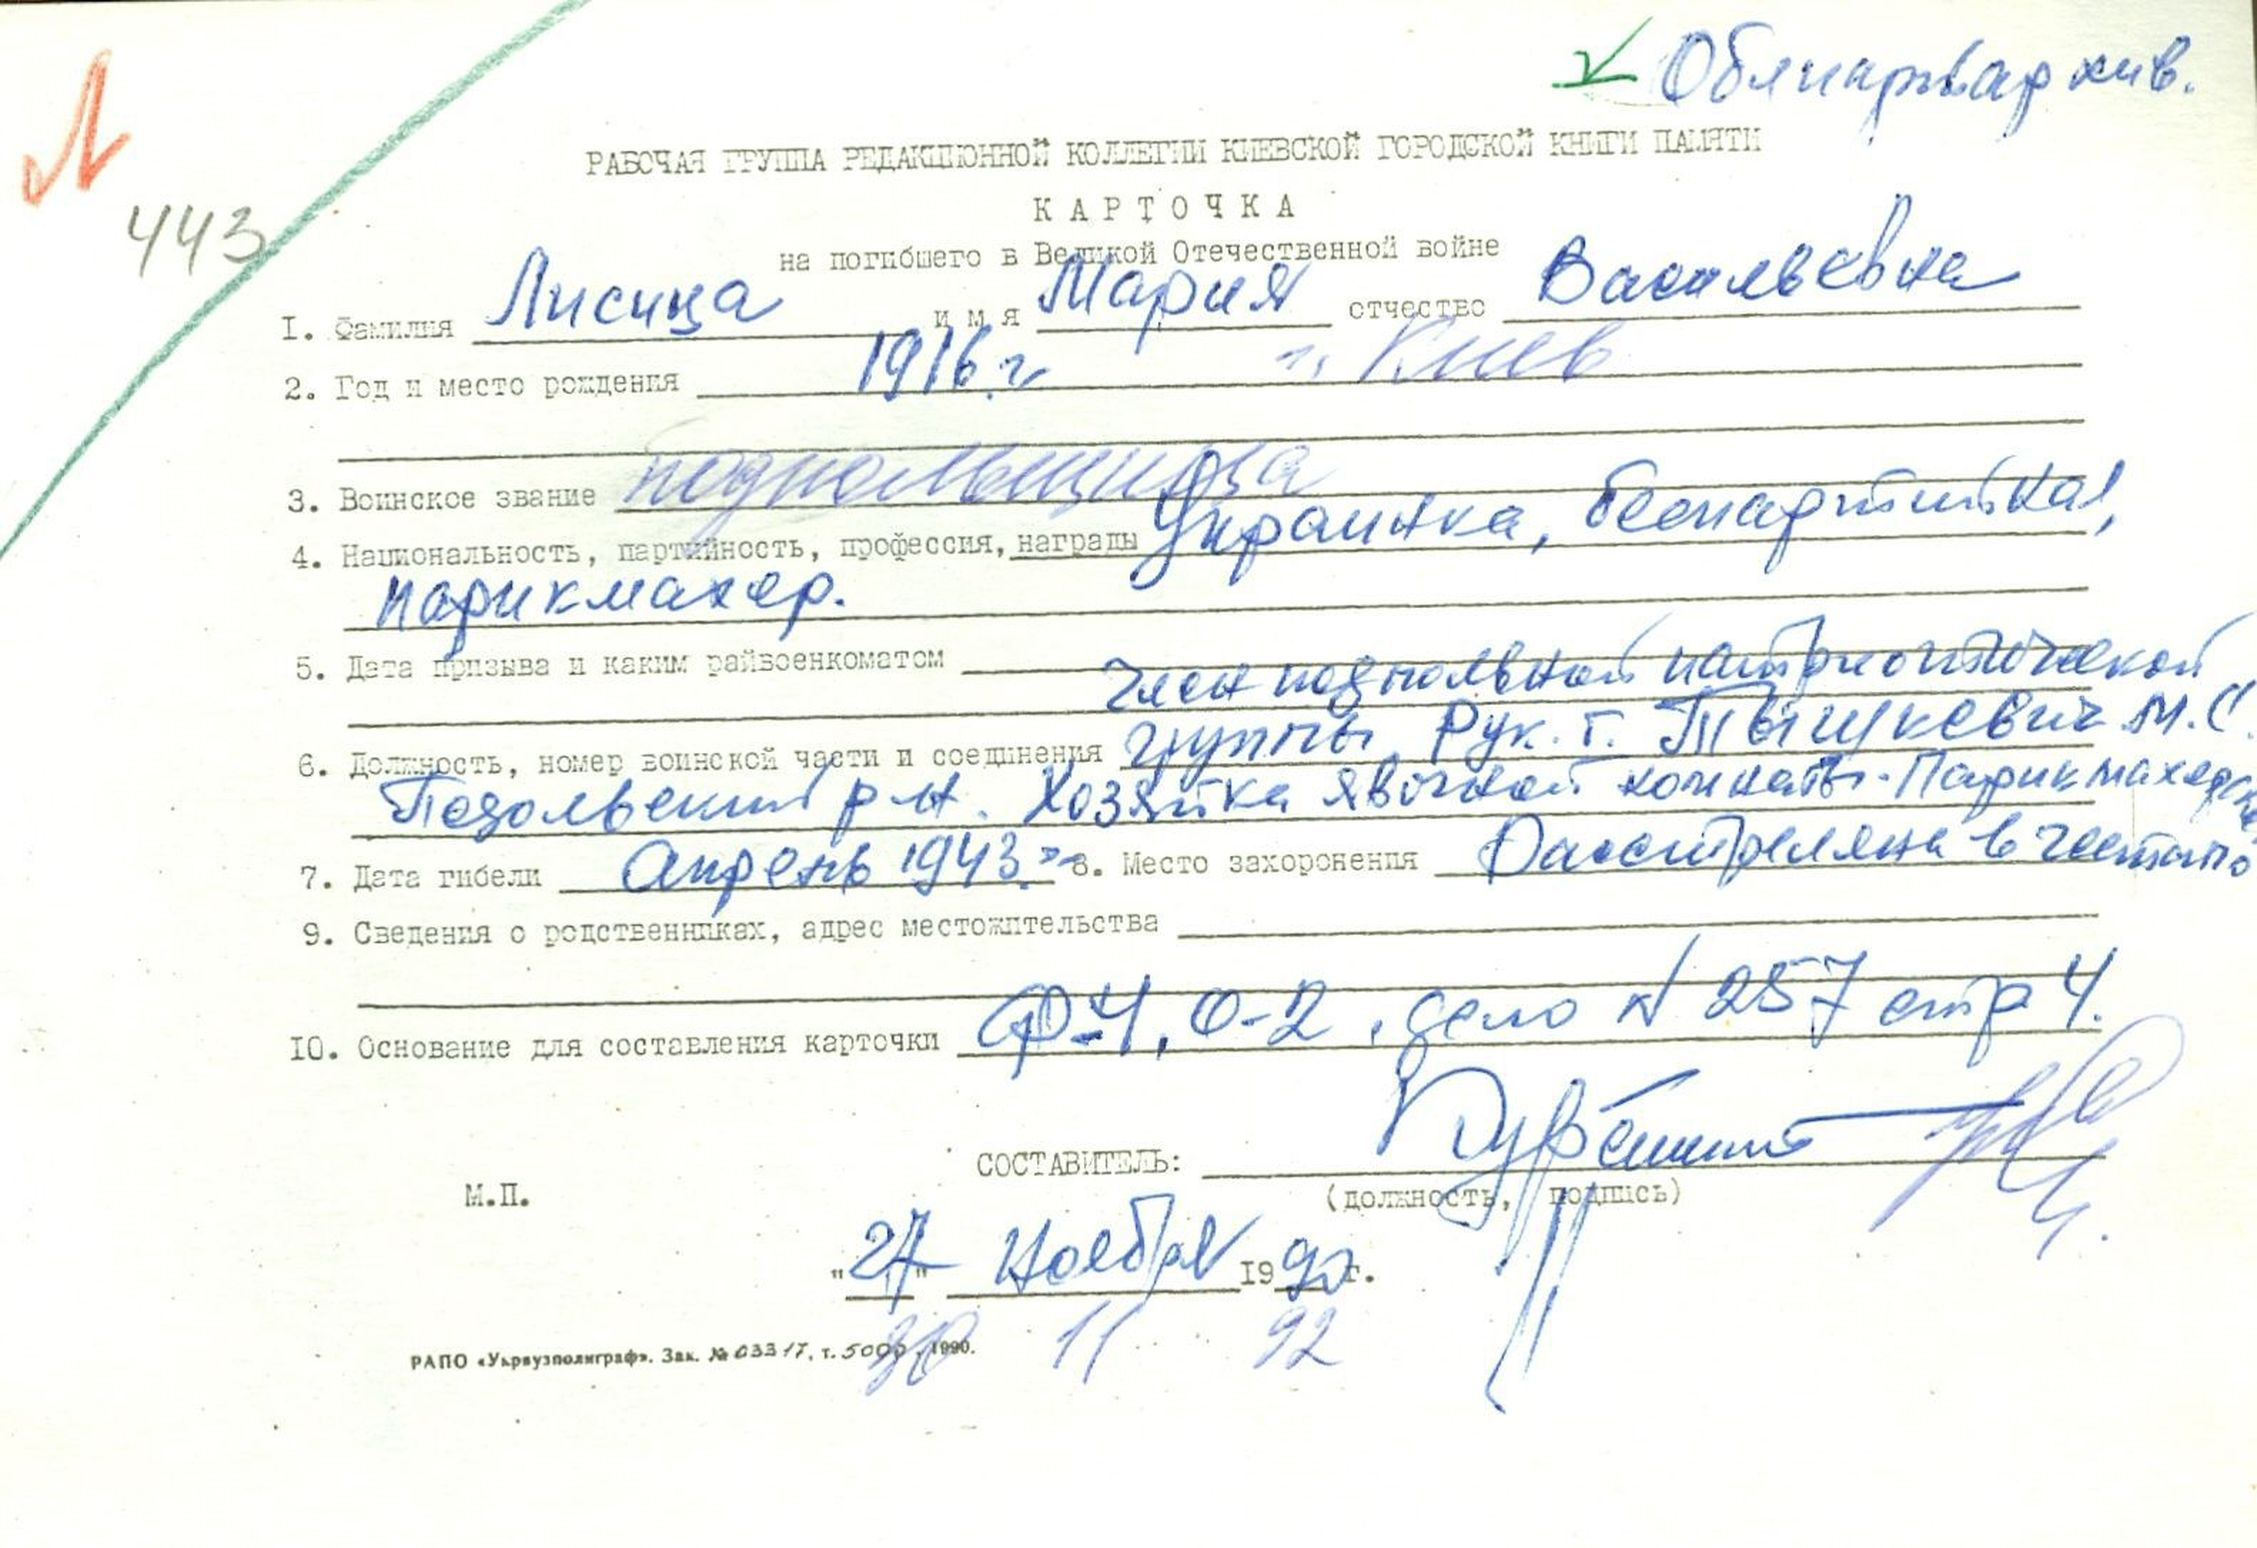 Облпартархив.
Л
443
РАБОЧАЯ ГРУППА РЕДАКЦИОННОЙ КОЛЛЕГИИ КИЕВСКОЙ ГОРОДСКОЙ КНИГИ ПАМЯТИ
КАРТОЧКА
на погибшего в Великой Отечественной войне
1. Фамилия Лисица имя Мария отчество Васильевна
2. Год и место рождения 1916 г г. Киев
3. Воинское звание подпольщица
4. Национальность, партийность, профессия, награды Украинка, беспартийная,
парикмахер.
5. Дата призыва и каким райвоенкоматом
член подпольной патриотической
6. Должность, номер воинской части и соединения группы Рук. г. Тышкевич М.С.
Подольский р-н. Хозяйка явочной комнаты - Парикмахерская
7. Дата гибели Апрель 1943 г. 8. Место захоронения Расстреляна в гестапо
9. Сведения о родственниках, адрес местожительства
10. Основание для составления карточки Ф-4, О-2, дело N 257 стр 4.
СОСТАВИТЕЛЬ:
М.П.
(должность, подпись)
"27" Ноября 1990 г.
30 11 92
РАПО «Укрвузполиграф». Зак. № 03317, т. 5000, 1990.